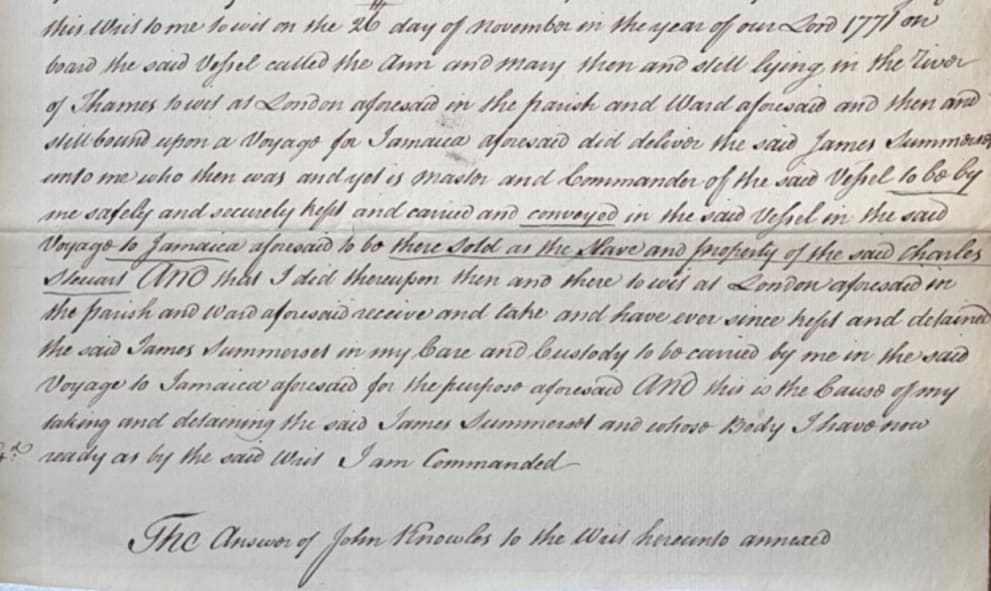 this Writ to me to wit on the 26th day of November in the year of our Lord 1771 on
board the said Vessel called the Ann and Mary then and still lying in the River
of Thames to wit at London aforesaid in the parish and Ward aforesaid and then and
still bound upon a Voyage for Jamaica aforesaid did deliver the said James Summerset
unto me who then was and yet is Master and Commander of the said Vessel to be by
me safely and securely kept and carried and conveyed in the said Vessel in the said
Voyage to Jamaica aforesaid to be there Sold as the Slave and property of the said Charles
Steuart AND that I did thereupon then and there to wit at London aforesaid in
the parish and Ward aforesaid receive and take and have ever since kept and detained
the said James Summerset in my Care and Custody to be carried by me in the said
Voyage to Jamaica aforesaid for the purpose aforesaid AND this is the Cause of my
taking and detaining the said James Summerset and whose Body I have now
ready as by the said Writ I am Commanded
The Answer of John Knowles to the Writ hereunto annexed